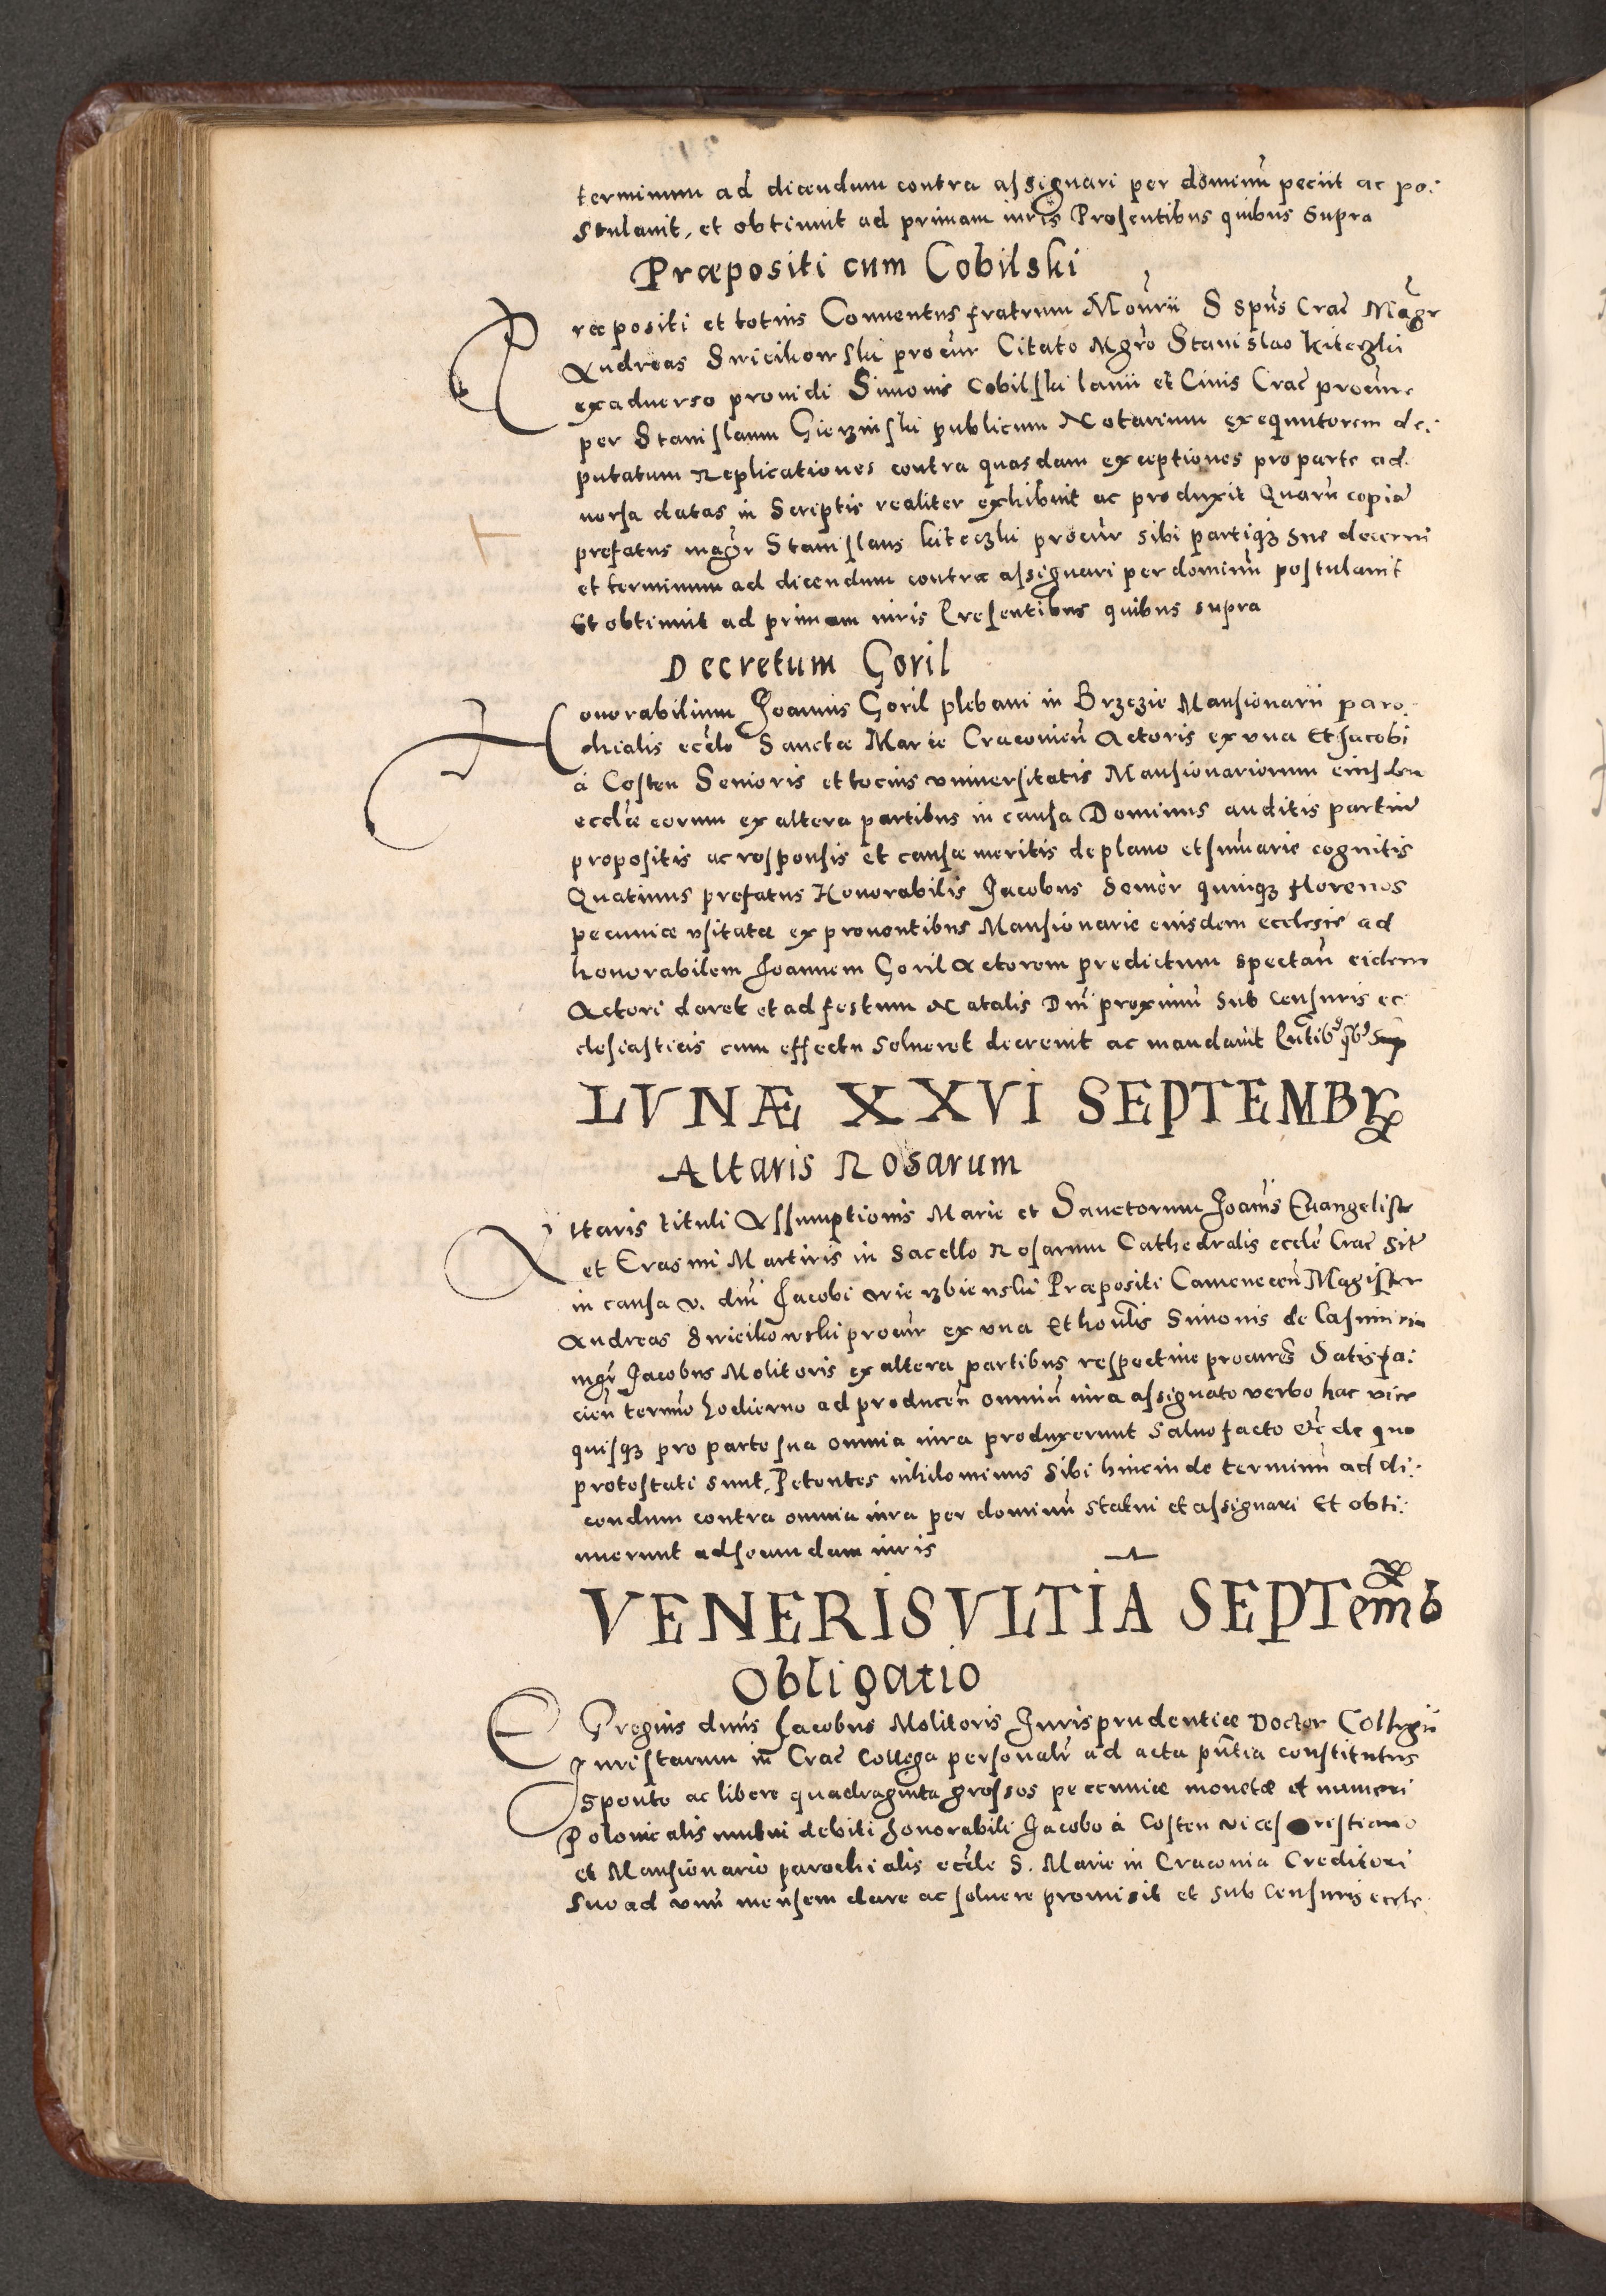 terminum ad dicendum contra assignari per dominũ peciit ac po:
stulauit, et obtinuit ad primam iuris Presentibus quibus supra
Præpositi cum Cobilski
Præpositi et totius Conuentus fratrum Monrii S spũs Crac̃ Magr
Andreas Swicikowski procur Citato Mgro Stanislao Kiteczki
exaduerso prouidi Simonis Cobilski lanii et Ciuis Crac̃ procure
per Stanislaum Gierzinski publicum Notarium exequutorem de:
putatum Replicationes contra quasdam exceptiones pro parte ad
uersa datas in Scriptis realiter exhibuit ac produxit Quarũ copiã
prefatus magr Stanislaus kiteczki procur sibi partiqȝ sue decerni
et terminum ad dicendum contra assignari per dominũ postulauit
Et obtinuit ad primam iuris Presentibus quibus supra
Decretum Goril
Honorabilium Joannis Goril plebani in Brzezie Mansionarii paro:
chialis eccle Sanctæ Mariæ Cracouien̄ Actoris ex vna Et Jacobi
á Costen Senioris et tocius vniuersitatis Mansionariorum eiusdem
eccliæ eorum ex altera partibus in causa Dominus auditis partiũ
propositis ac responsis et causæ meritis de plano et sum̃arie cognitis
Quatinus prefatus Honorabilis Jacobus Senior quinqȝ florenos
pecuniæ vsitatæ ex prouentibus Mansionarie eiusdem ecclesie ad
honorabilem Joannem Goril Actorem predictum spectan̄ eidem
Actori daret et ad festum Natalis Dnĩ proximũ sub censuris ec
clesiasticis cum effectu solueret decreuit ac mandauit Pn̄tibꝰ qbꝰ sup
LVNÆ XXVI SEPTEMBR
Altaris Rosarum
Altaris tituli Assumptionis Marie et Sanctorum Joanis Euangeliste
et Erasmi Martiris in sacello Rosarum Cathedralis eccle Crac̃ sit̃
in causa v. dnĩ Jacobi wierzbienski Præpositi Camenecen̄ Magister
Andreas Swicikowski procur ex vna Et honlis Simonis de Casimiria
mgr Jacobus Molitoris ex altera partibus respectiue procures Satisfa:
cien̄ termĩo hodierno ad producen̄ omniũ iura assignato verbo hac vice
quisqȝ pro parte sua omnia iura produxerunt saluo facto etc̃ de quo
protestati sunt, Petentes nihilominus sibi hincinde terminũ ad di:
cendum contra omnia iura per dominũ statui et assignari Et obti:
nuerunt ad secundam iuris
VENERIS VLTIA SEPTemb
Obligatio
Egregius dnũs Jacobus Molitoris Jurisprudentiæ Doctor Collegii
Juristarum in Crac̃ Collega personalr ad acta pn̄tia constitutus
Sponte ac libere quadraginta grossos pecuniæ monetæ et numeri
Polonicalis mutui debiti honorabili Jacobo á Costen
et Mansionario parochialis eccle S. Marie in Cracouia Creditori
suo ad vnũ mensem dare ac soluere promisit et sub Censuris eccle